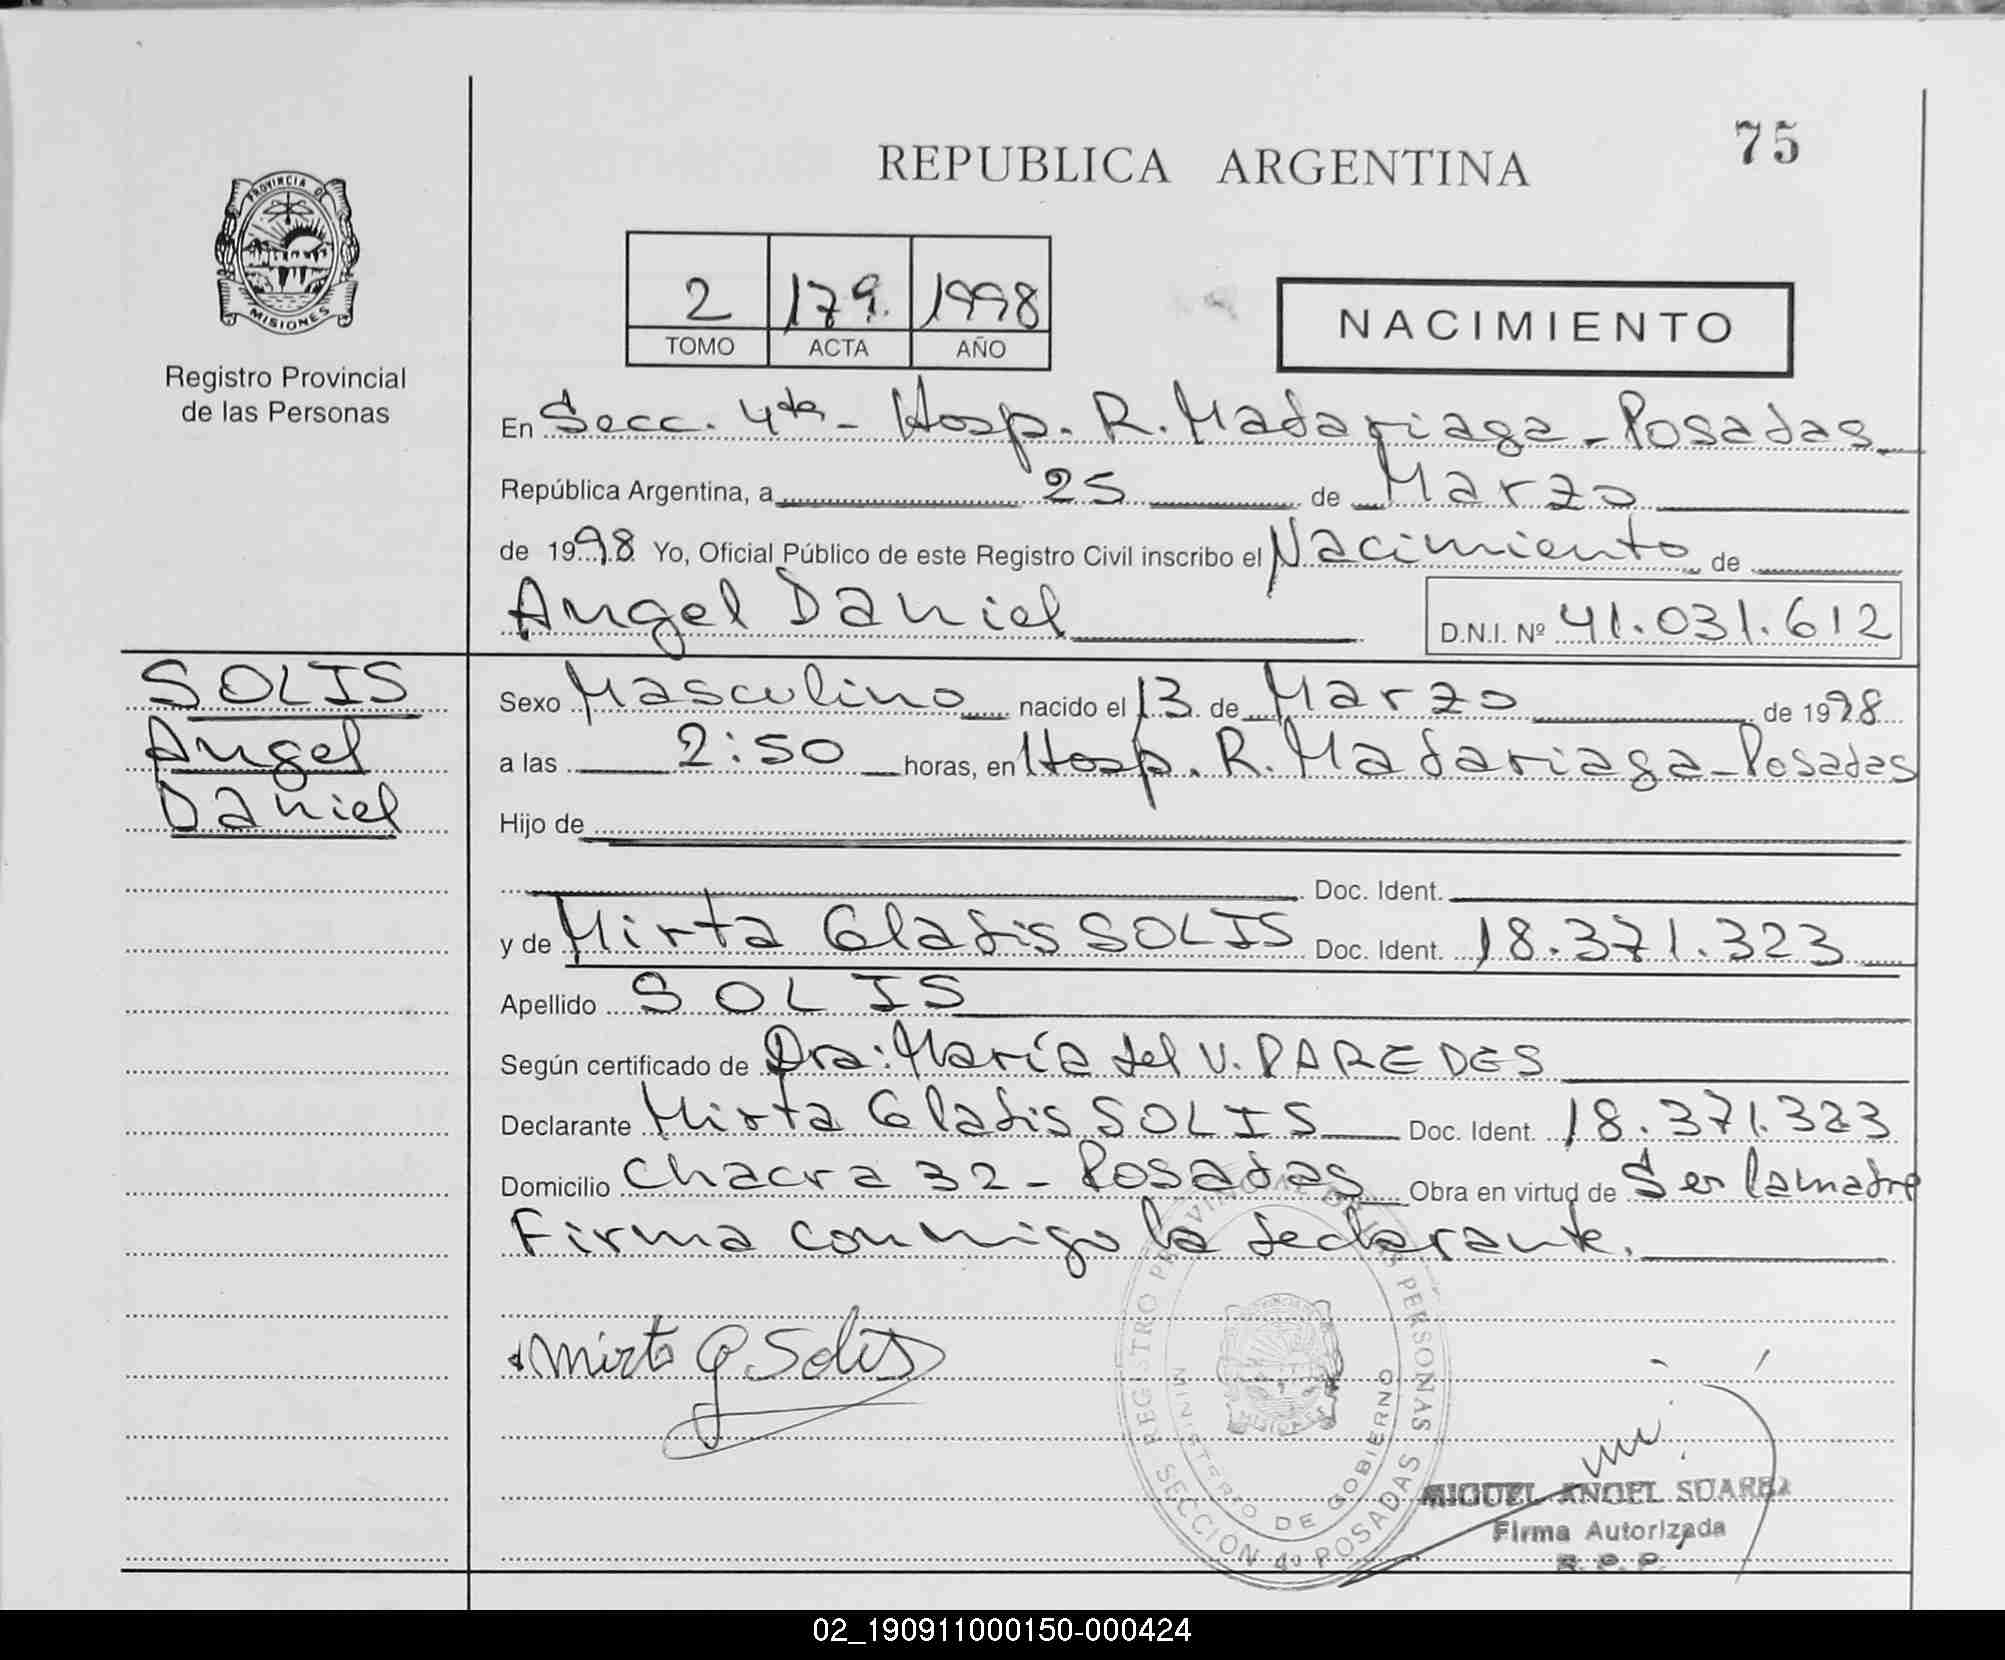 75
REPUBLICA ARGENTINA
PROVINCIA DE
MISIONES
Registro Provincial
de las Personas
2 179. 1998
TOMO ACTA AÑO
NACIMIENTO
En Secc. 4ta - Hosp. R. Madariaga - Posadas
República Argentina, a 25 de Marzo
de 1998 Yo, Oficial Público de este Registro Civil inscribo el Nacimiento de
Angel Daniel D.N.I. Nº 41.031.612
SOLIS
Angel
Daniel
Sexo Masculino nacido el 13 de Marzo de 1998
a las 2:50 horas, en Hosp. R. Madariaga - Posadas
Hijo de
Doc. Ident.
y de Mirta Gladis SOLIS Doc. Ident. 18.371.323
Apellido SOLIS
Según certificado de Dra: María del V. PAREDES
Declarante Mirta Gladis SOLIS Doc. Ident. 18.371.323
Domicilio Chacra 32 - Posadas Obra en virtud de Ser la madre
Firma conmigo la declarante.
Mirta G. Solis
REGISTRO PROVINCIAL DE LAS PERSONAS
MINISTERIO DE GOBIERNO
MISIONES
SECCION 4º POSADAS
MIGUEL ANGEL SUAREZ
Firma Autorizada
R. P. P.
02_190911000150-000424